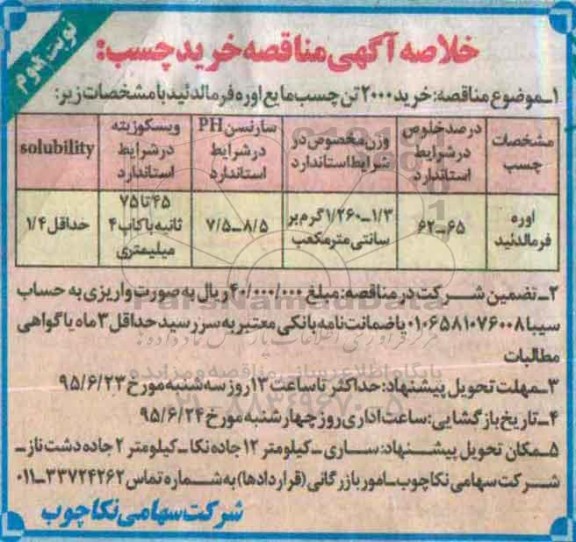 نوبت دوم
خلاصه آگهی مناقصه خرید چسب:
۱ـ موضوع مناقصه: خرید ۲۰۰۰ تن چسب مایع اوره فرمالدئید با مشخصات زیر:
مشخصات چسب | درصد خلوص در شرایط استاندارد | وزن مخصوص در شرایط استاندارد | سارنسن PH در شرایط استاندارد | ویسکوزیته در شرایط استاندارد | solubility
اوره فرمالدئید | ۶۵ــ۶۲ | ۱/۳ــ۱/۲۶۰ گرم بر سانتی مترمکعب | ۸/۵ــ۷/۵ | ۴۵ تا ۷۵ ثانیه با کاپ ۴ میلیمتری | حداقل ۱/۴
۲ـ تضمین شرکت در مناقصه: مبلغ ۴۰/۰۰۰/۰۰۰ ریال به صورت واریزی به حساب
سیبا ۰۱۰۶۵۸۱۰۷۶۰۰۸ یا ضمانت نامه بانکی معتبر به سررسید حداقل ۳ ماه یا گواهی
مطالبات
۳ـ مهلت تحویل پیشنهاد: حداکثر تا ساعت ۱۳ روز سه شنبه مورخ ۹۵/۶/۲۳
۴ـ تاریخ بازگشایی: ساعت اداری روز چهارشنبه مورخ ۹۵/۶/۲۴
۵ـ مکان تحویل پیشنهاد: ساری ـ کیلومتر ۱۲ جاده نکا ـ کیلومتر ۲ جاده دشت ناز ـ
شرکت سهامی نکاچوب ـ امور بازرگانی (قراردادها) به شماره تماس ۳۳۷۲۴۲۶۲ــ۰۱۱
شرکت سهامی نکاچوب